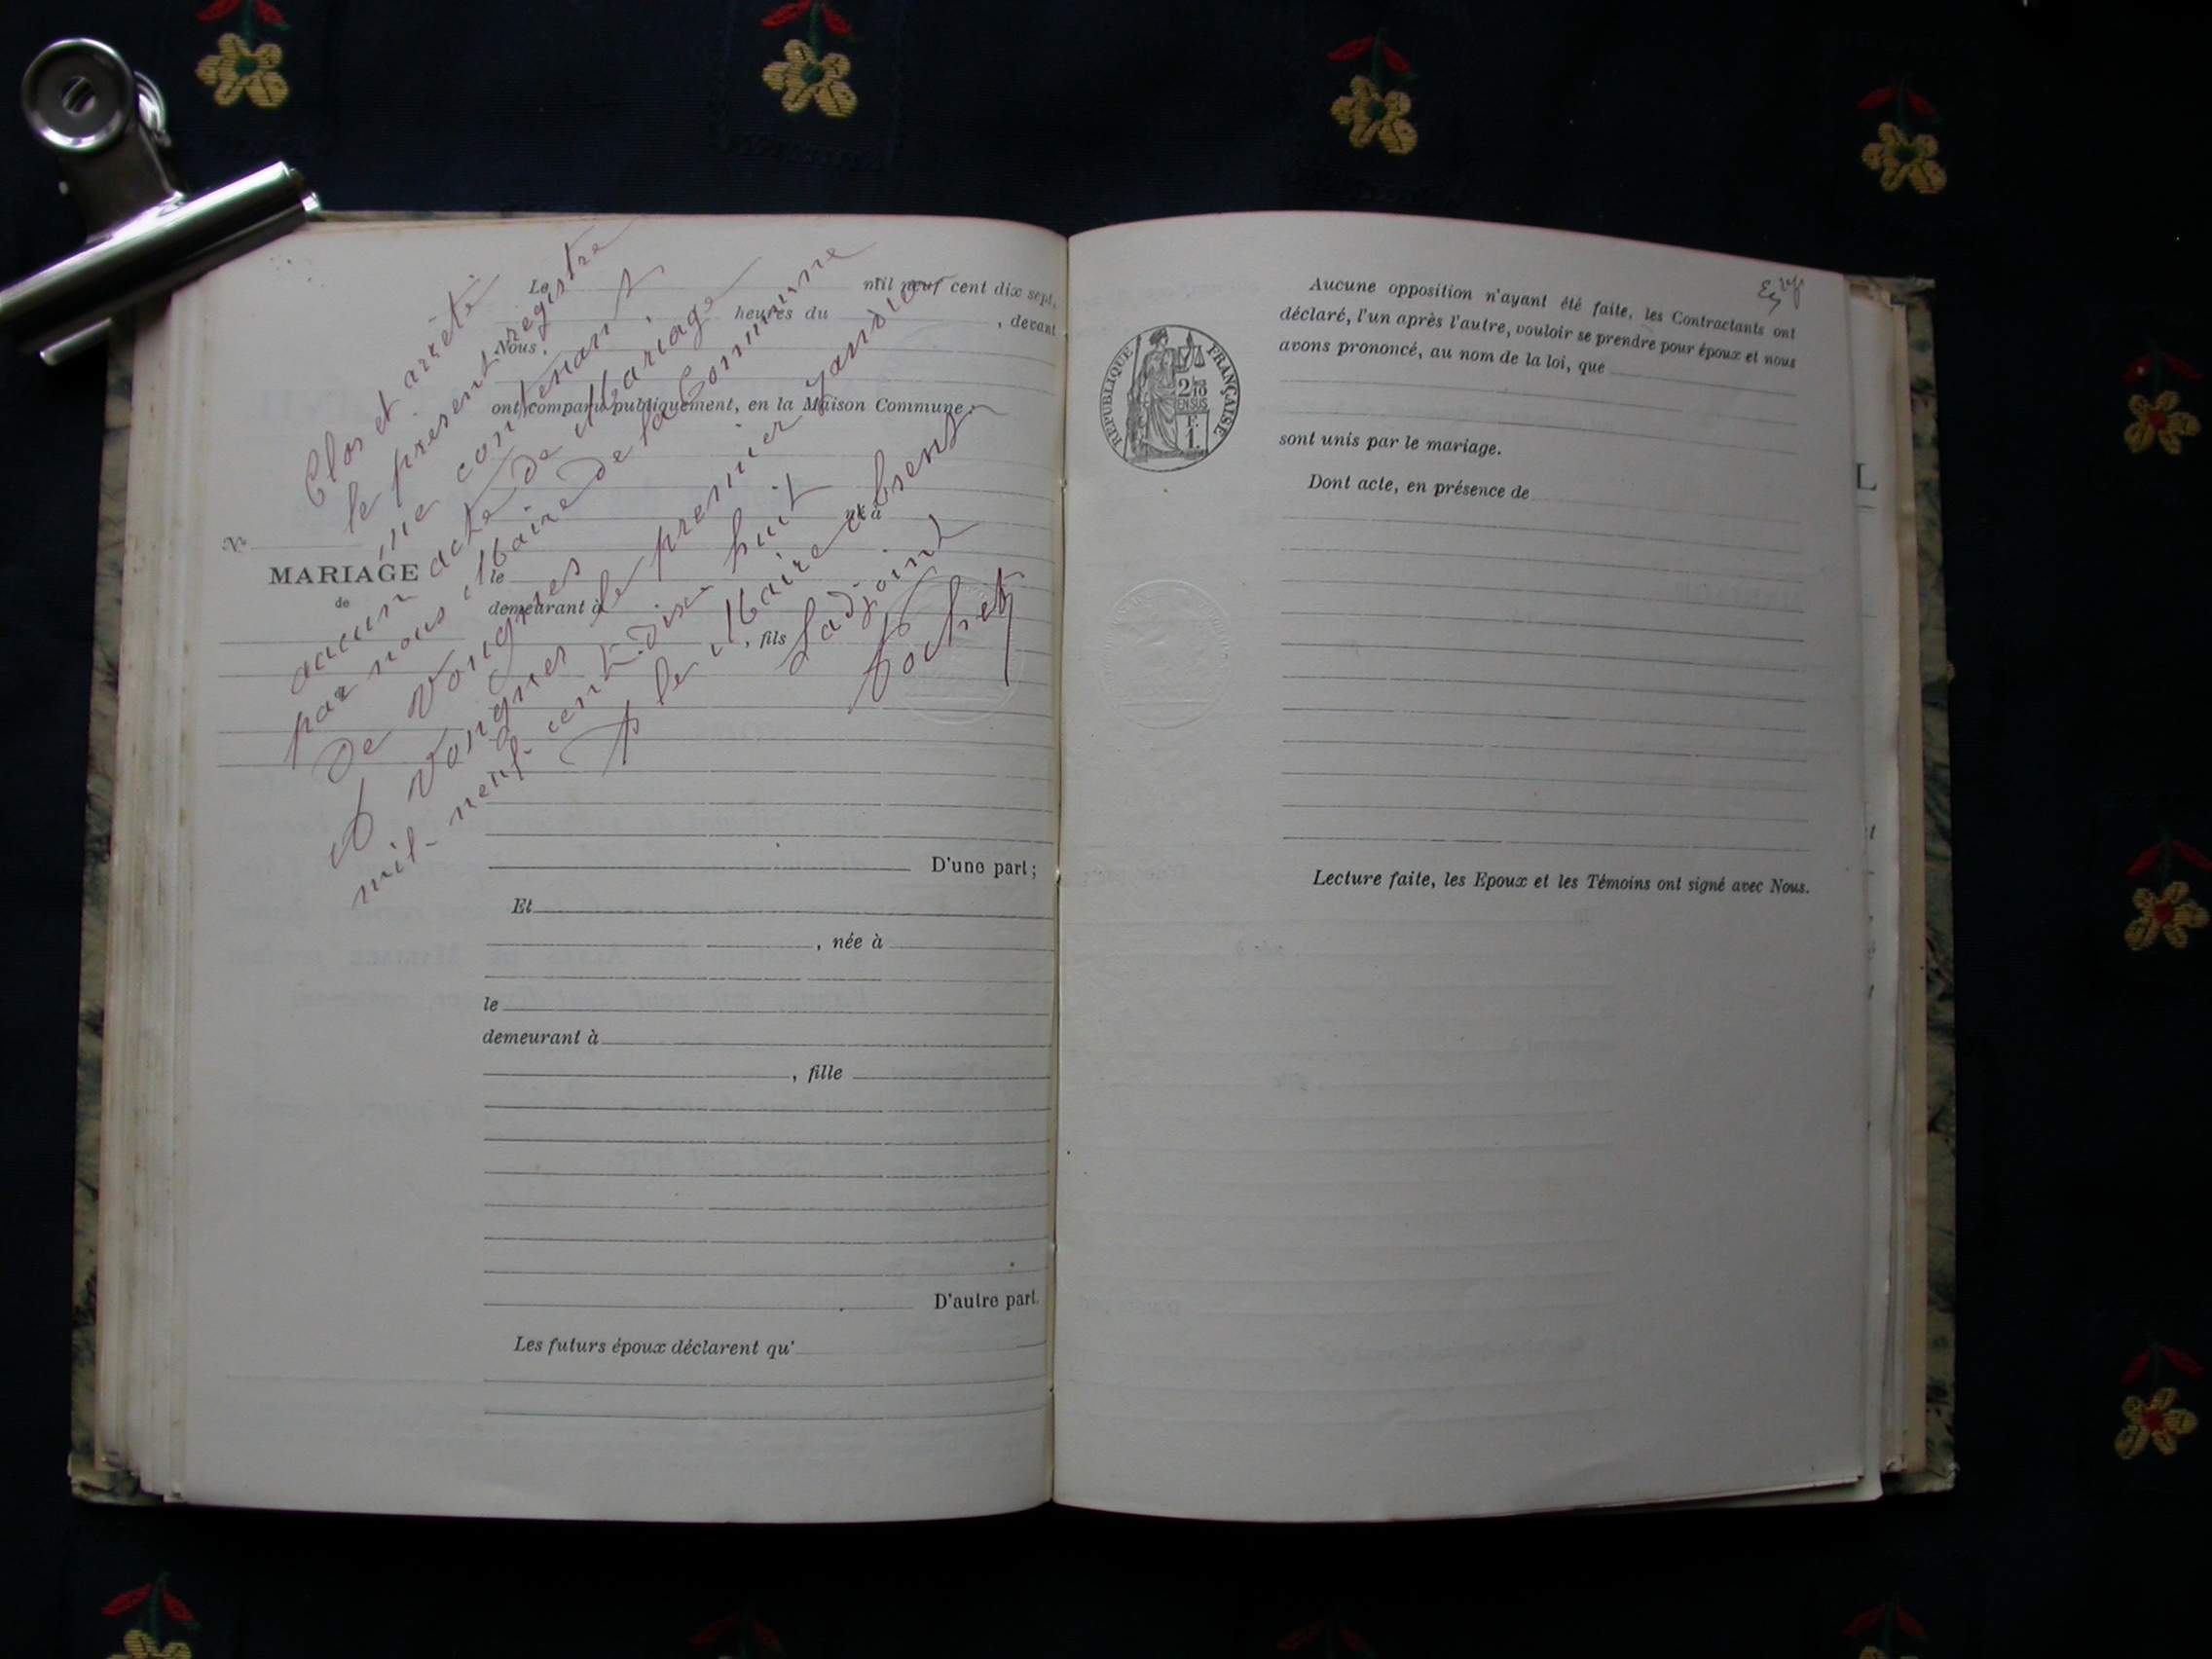 Clos et arrêté
le présent registre
ne contenant
aucun acte de Mariage
par nous Maire de la Commune
de Vongnes
A Vongnes le premier Janvier
mil-neuf-cent-dix-huit
P le Maire absent
Ladjoint
Pochet
Le mil neuf cent dix sept,
heures du , devant
Nous,
ont comparu publiquement, en la Maison Commune :
né à
No
MARIAGE
de
le
demeurant à
, fils
D'une part ;
Et
, née à
le
demeurant à
, fille
D'autre part.
Les futurs époux déclarent qu'
Aucune opposition n'ayant été faite, les Contractants ont
déclaré, l'un après l'autre, vouloir se prendre pour époux et nous
avons prononcé, au nom de la loi, que
RÉPUBLIQUE FRANÇAISE
2/10
EN SUS
F.
1.
sont unis par le mariage.
Dont acte, en présence de
Lecture faite, les Epoux et les Témoins ont signé avec Nous.
L